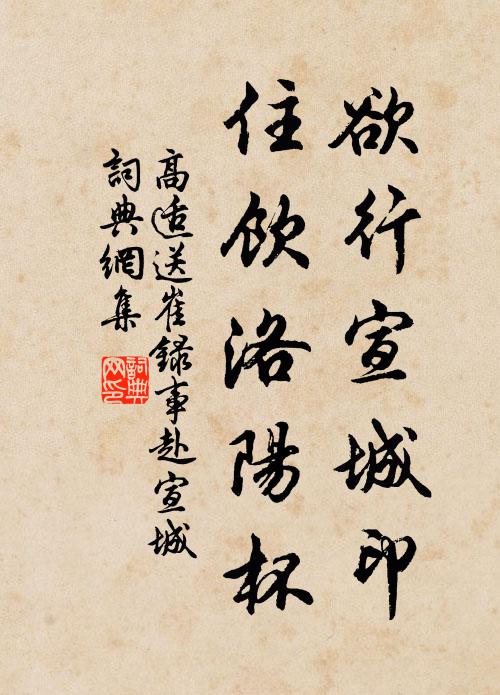 欲行宣城印
住飲洛陽杯
高適送崔錄事赴宣城
詞典網集
詞典網印